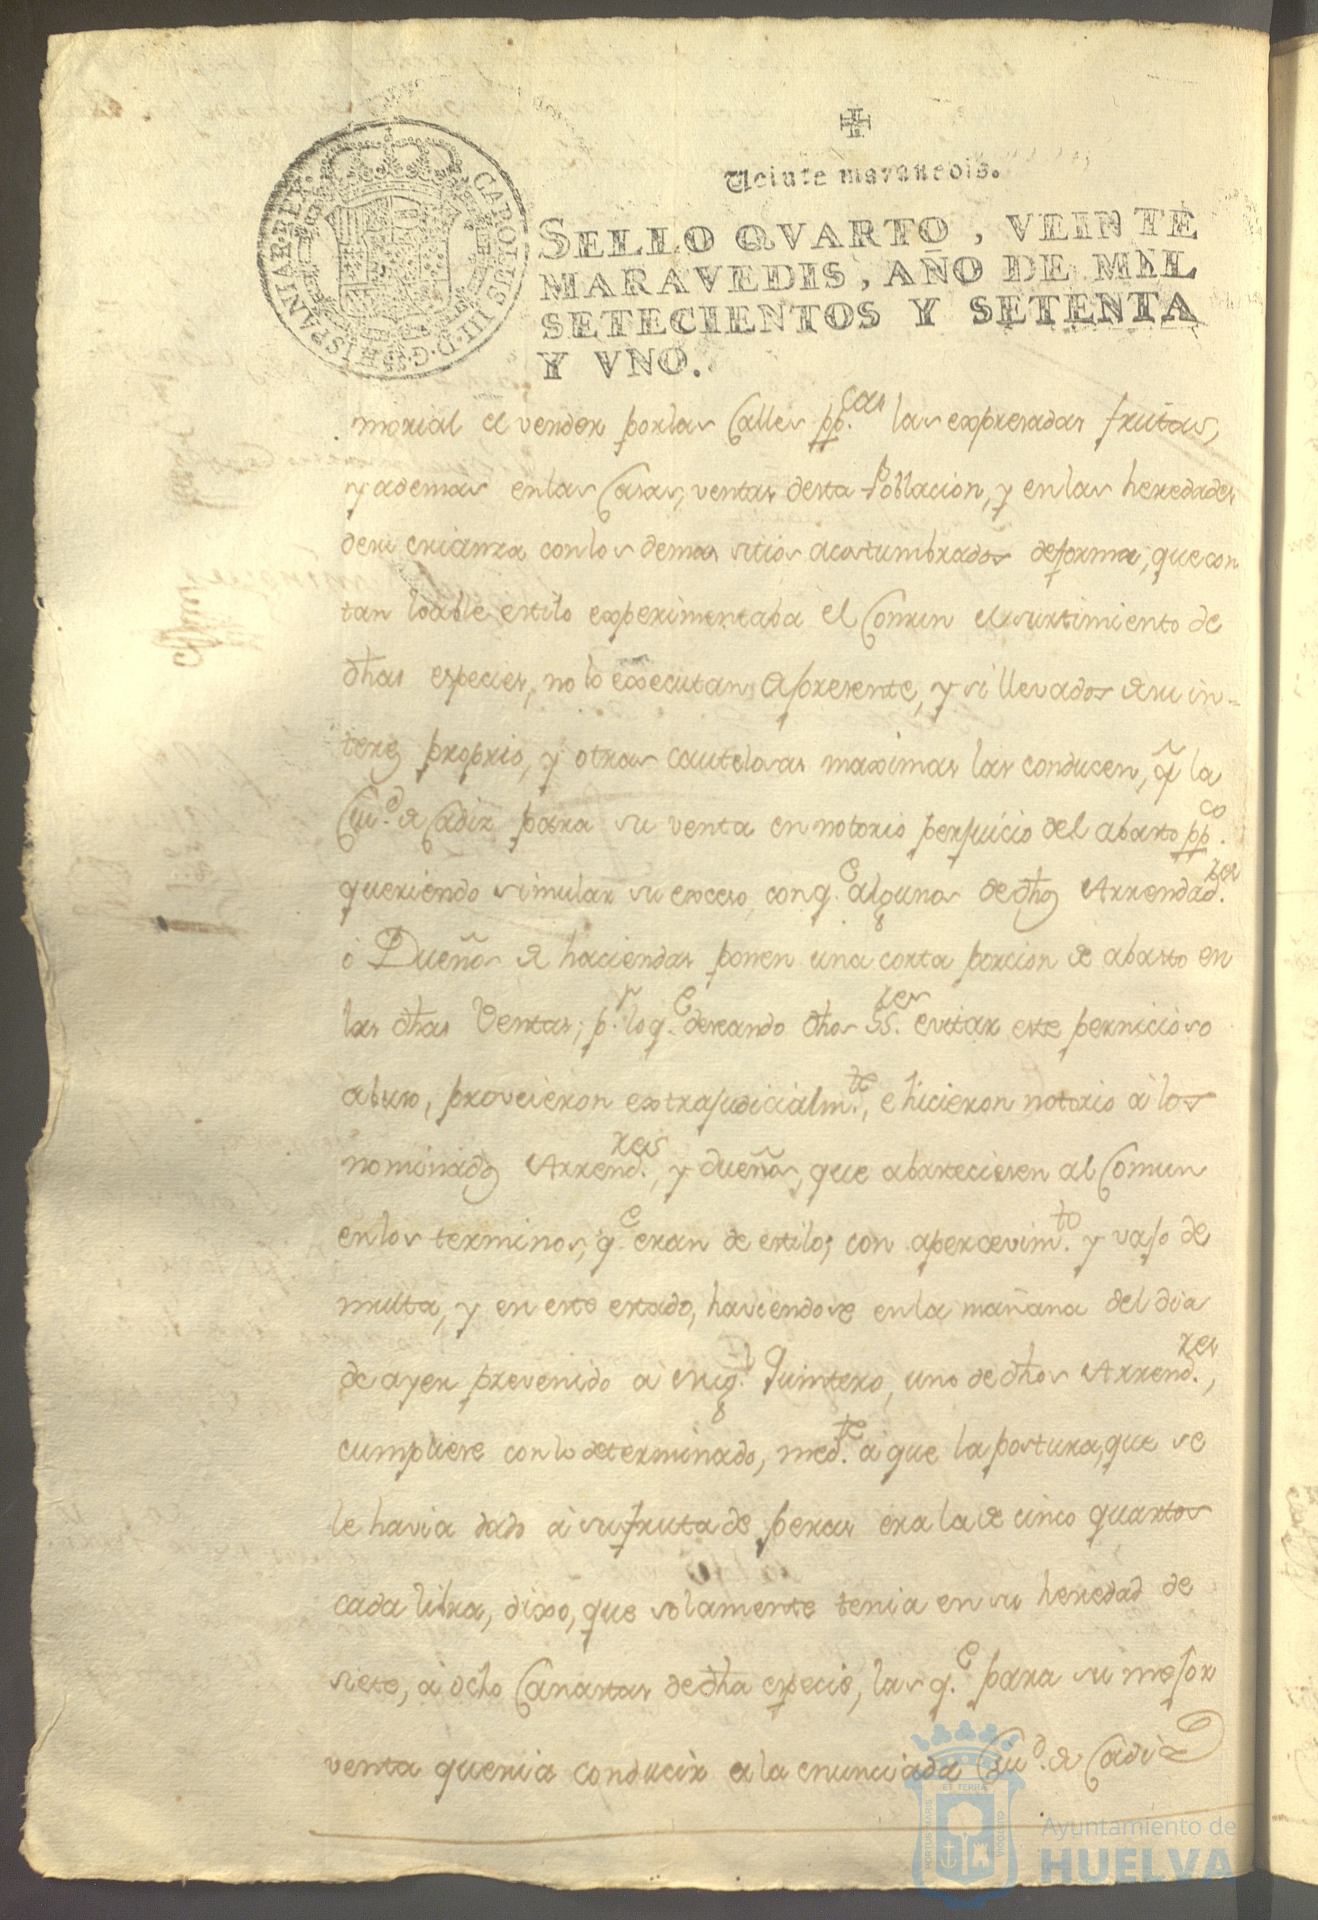 Veinte maravedis.
SELLO QVARTO, VEINTE
MARAVEDIS, AÑO DE MIL
SETECIENTOS Y SETENTA
Y VNO.
CAROLUS III. D. G. HISPANIAR. REX.
morial el vender por las Calles pp.cas las expresadas frutas,
y ademas en las Casas, ventas desta Poblacion, y en las heredades
de su crianza con los demas sitios acostumbrados de forma, que con
tan loable estilo experimentaba el Comun el surtimiento de
dhas especies, no lo executan Apresente, y si llevados de su in-
teres proprio, y otras cautelosas maximas las conducen, a la
Ciu.d de Cadiz para su venta en notorio perjuicio del abasto pp.co
queriendo simular su exceso, con q.e algunos de dhos Arrendad.res
ò Dueños de haciendas ponen una corta porcion de abasto en
las dhas Ventas; p.r lo q.e deseando dhos SS.res evitar este pernicioso
abuso, proveieron extrajudicialm.te, e hicieron notorio à los
nominados Arrend.res, y dueños, que abasteciesen al Comun
en los terminos, q.e eran de estilo; con apercevim.to y vajo de
multa, y en este estado, haviendose en la mañana del dia
de ayer prevenido à Mig.l Quintero, uno de dhos Arrend.res,
cumpliese con lo determinado, med.te à que la postura, que se
le havia dado à su fruta de peras era la de cinco quartos
cada libra, dixo, que solamente tenia en su heredad de
siete, à ocho Canastas de dha especie, las q.e para su mejor
venta queria conducir a la enunciada Ciu.d de Cadiz
Ayuntamiento de
HUELVA